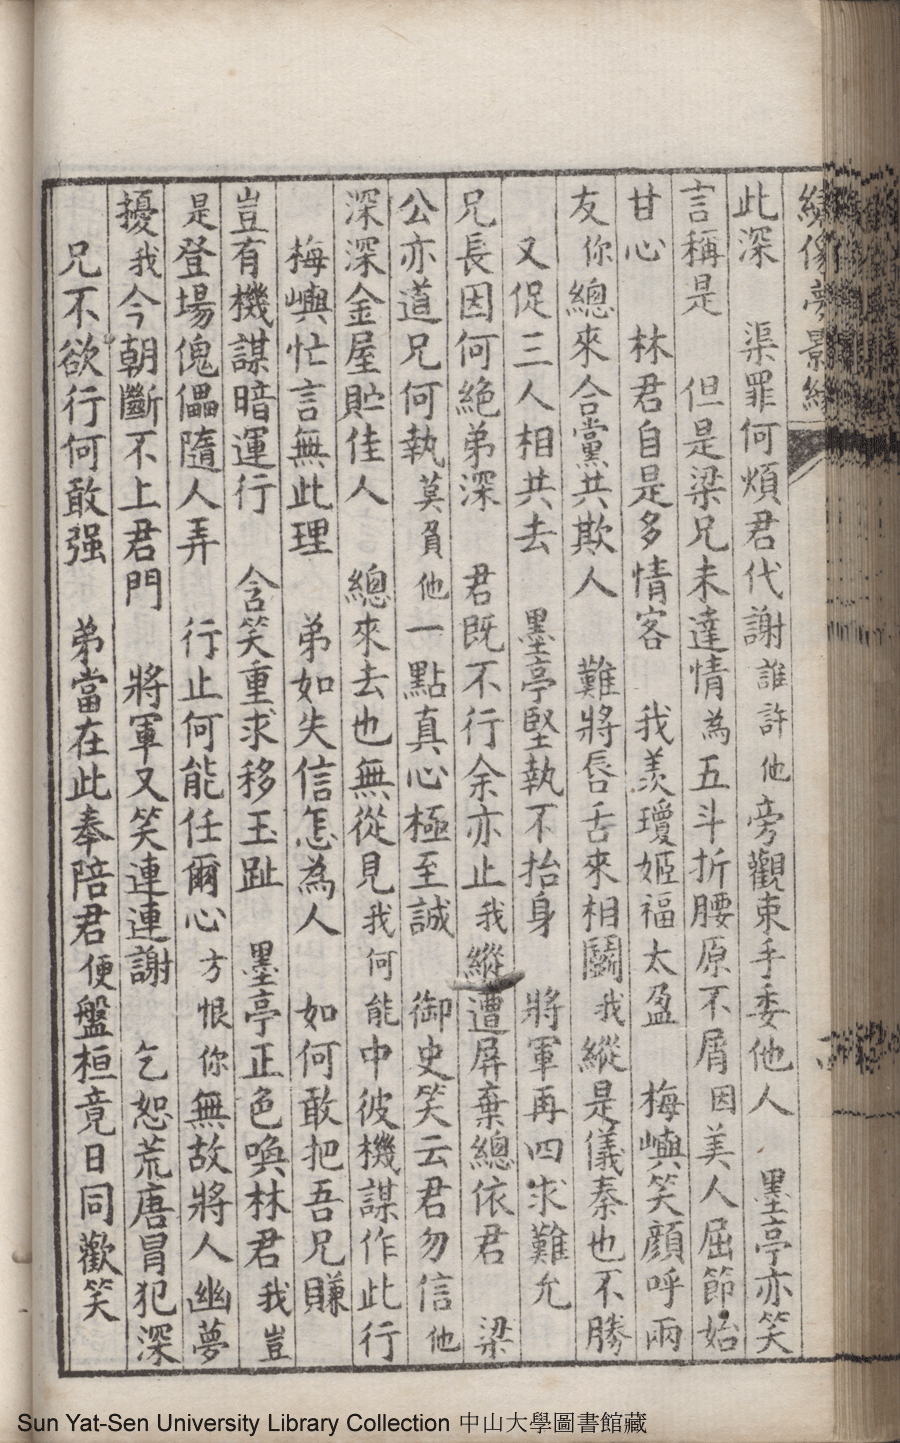 繡像夢影緣
此深　渠罪何煩君代謝誰許他旁觀束手委他人　墨亭亦笑
言稱是　但是梁兄未達情為五斗折腰原不屑因美人屈節始
甘心　林君自是多情客　我羨瓊姬福太盈　梅嶼笑顏呼兩
友你總來合黨共欺人　難將唇舌來相鬬我縱是儀秦也不勝
又促三人相共去　墨亭堅執不抬身　將軍再四求難允
兄長因何絶弟深　君既不行余亦止我縱遭屏棄總依君　梁
公亦道兄何執莫負他一點真心極至誠　御史笑云君勿信他
深深金屋貯佳人　總來去也無從見我何能中彼機謀作此行
梅嶼忙言無此理　弟如失信怎為人　如何敢把吾兄賺
豈有機謀暗運行　含笑重求移玉趾　墨亭正色喚林君我豈
是登場傀儡隨人弄　行止何能任爾心方恨你無故將人幽夢
擾我今朝斷不上君門　將軍又笑連連謝　乞恕荒唐冒犯深
兄不欲行何敢强　弟當在此奉陪君便盤桓竟日同歡笑
Sun Yat-Sen University Library Collection 中山大學圖書館藏